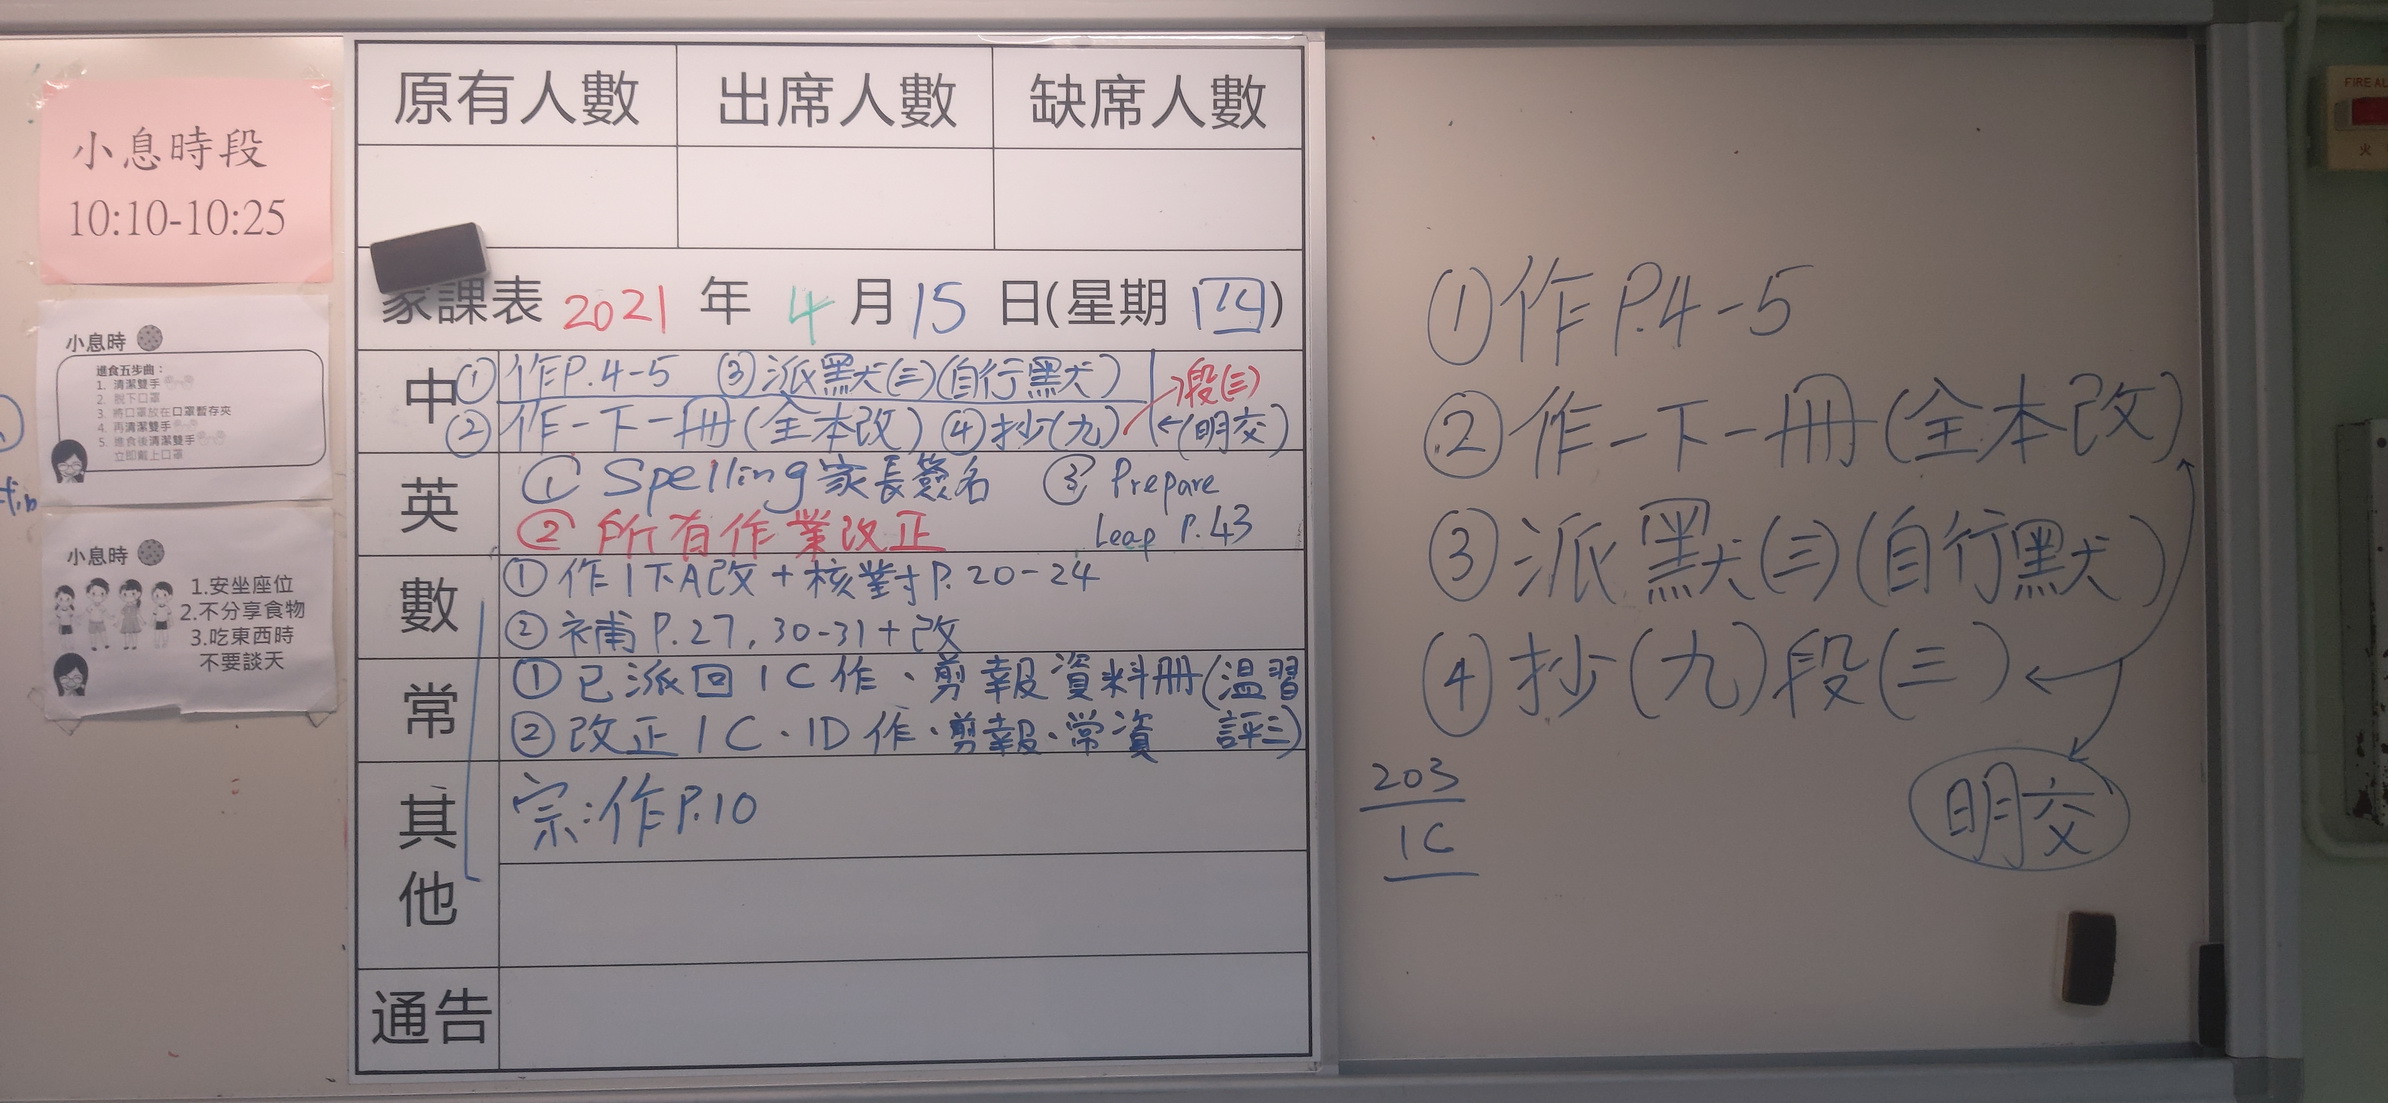 小息時段
10:10-10:25
小息時
進食五步曲：
1. 清潔雙手
2. 脫下口罩
3. 將口罩放在口罩暫存夾
4. 再清潔雙手
5. 進食後清潔雙手
立即戴上口罩
小息時
1.安坐座位
2.不分享食物
3.吃東西時
不要談天
原有人數 出席人數 缺席人數
家課表 2021 年 4 月 15 日(星期 四)
中 ①作P.4-5 ③派默(三)(自行默) 段(三)
②作一下一冊(全本改) ④抄(九) ←(明交)
英 ① Spelling 家長簽名 ③ Prepare
② 所有作業改正 Leap P.43
數 ① 作1下A改+核對P.20-24
② 補P.27, 30-31+改
常 ① 已派回1C作、剪報資料冊(溫習
② 改正1C、1D作、剪報、常資 評三)
其他 宗:作P.10
通告
①作P.4-5
②作一下一冊(全本改)
③派默(三)(自行默)
④抄(九)段(三)←
明交
203
1C
FIRE AL
火